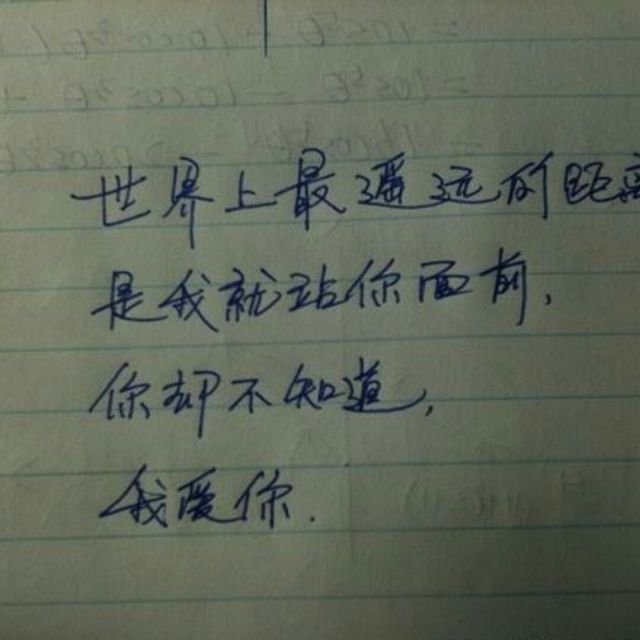 世界上最遥远的距离
是我就站你面前,
你却不知道,
我爱你.